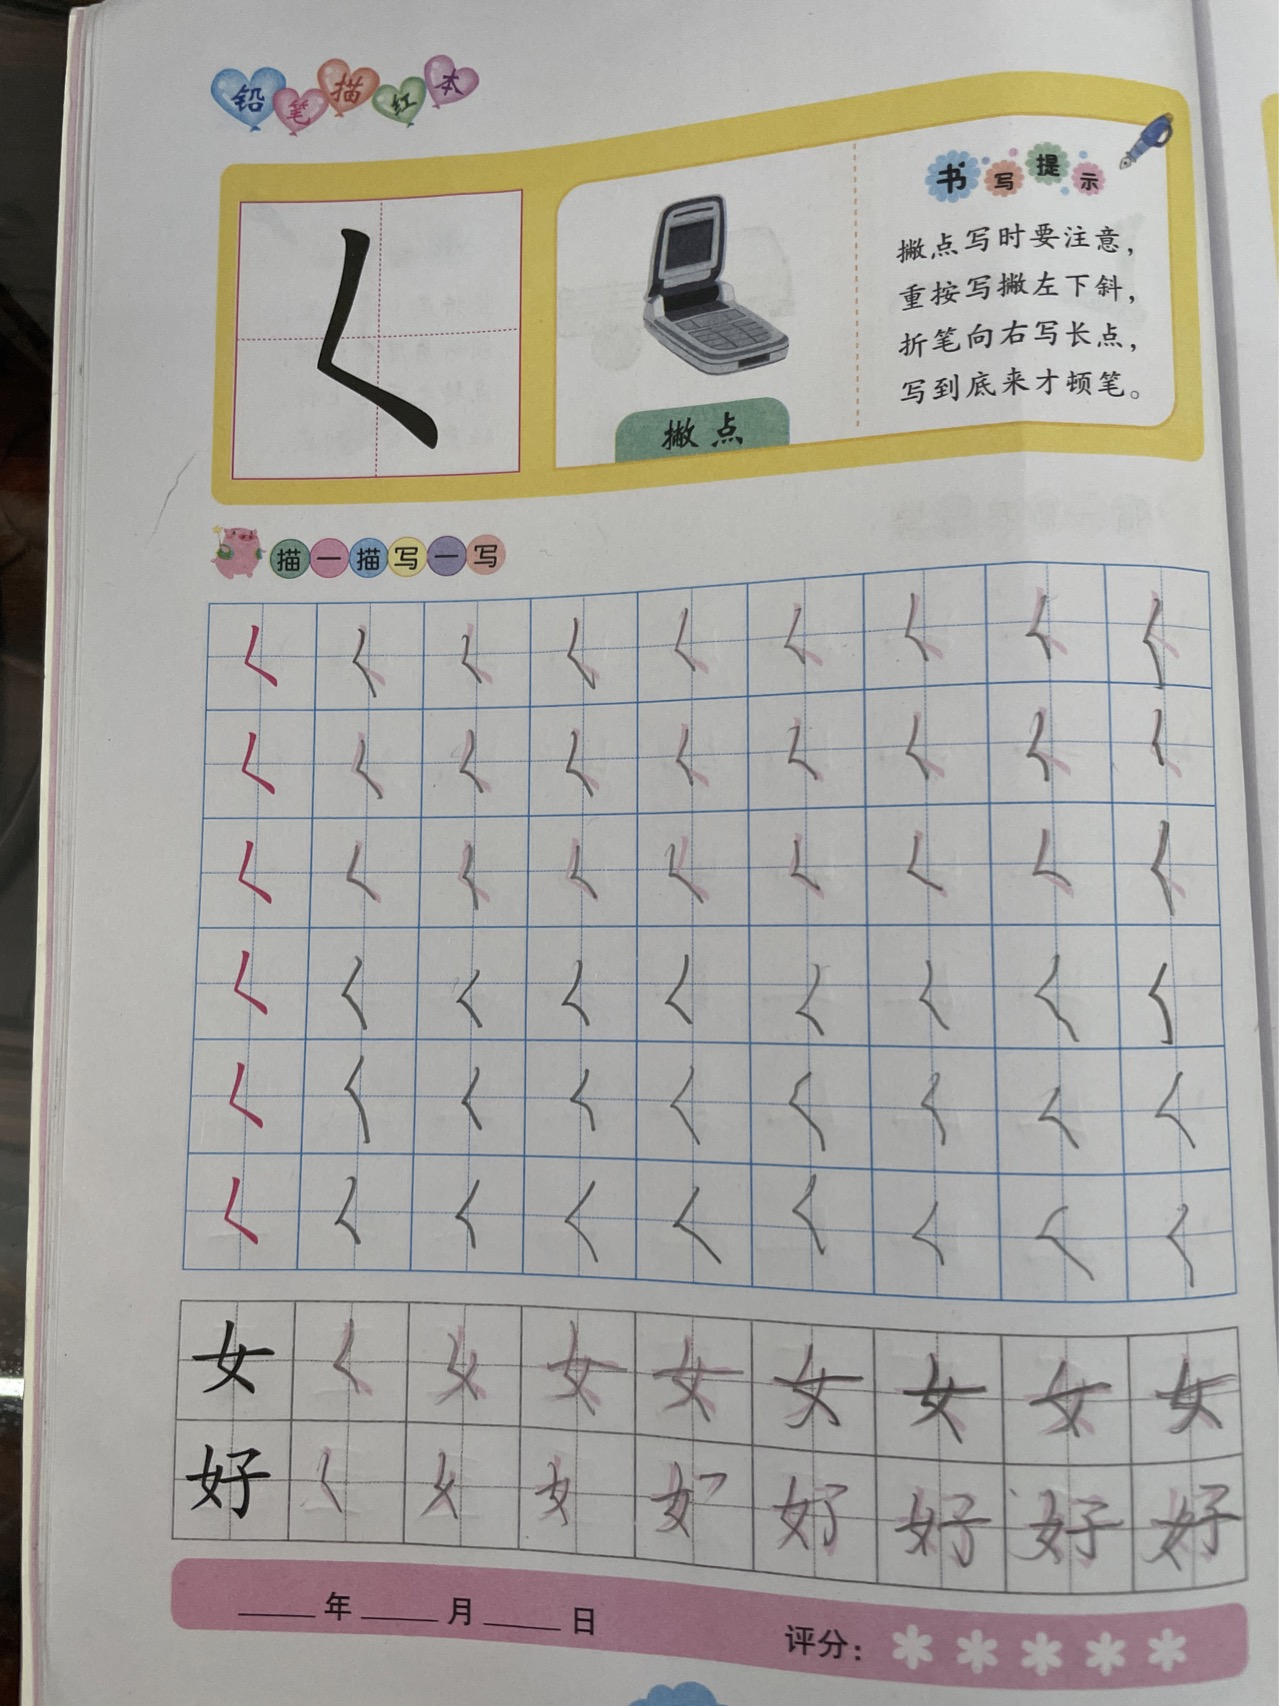 铅笔描红本
𡿨
撇点
书写提示
撇点写时要注意，
重按写撇左下斜，
折笔向右写长点，
写到底来才顿笔。
描一描写一写
𡿨 𡿨 𡿨 𡿨 𡿨 𡿨 𡿨 𡿨 𡿨
𡿨 𡿨 𡿨 𡿨 𡿨 𡿨 𡿨 𡿨 𡿨
𡿨 𡿨 𡿨 𡿨 𡿨 𡿨 𡿨 𡿨 𡿨
𡿨 𡿨 𡿨 𡿨 𡿨 𡿨 𡿨 𡿨 𡿨
𡿨 𡿨 𡿨 𡿨 𡿨 𡿨 𡿨 𡿨 𡿨
𡿨 𡿨 𡿨 𡿨 𡿨 𡿨 𡿨 𡿨 𡿨
女 𡿨 女 女 女 女 女 女
好 𡿨 女 好 好 好 好
____年____月____日
评分：